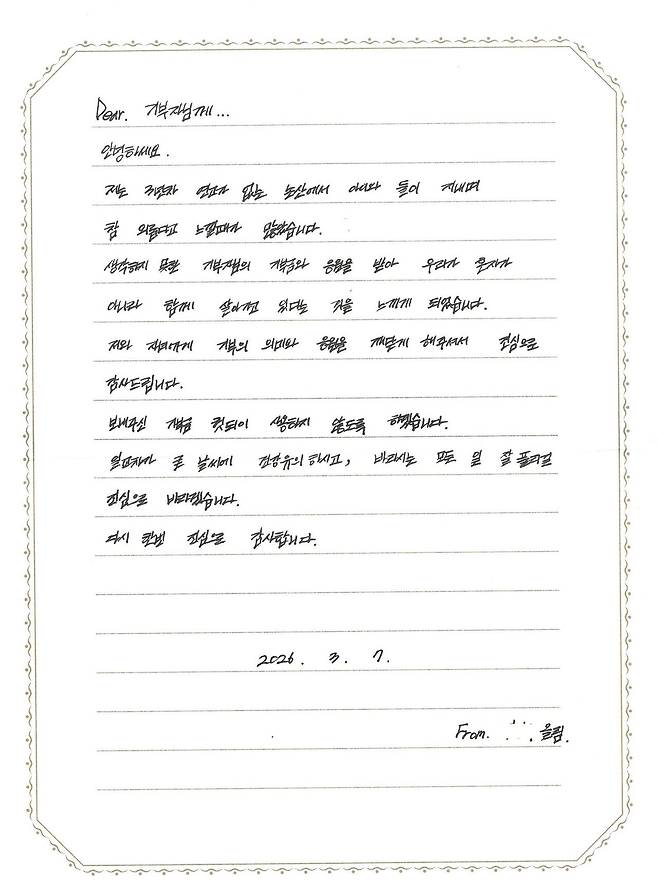 Dear. 기부자님께...
안녕하세요.
저는 연고가 없는 논산에서 아이와 둘이 지내며
참 외롭다고 느낄때가 많았습니다.
생각하지 못한 기부자님의 기부금와 응원을 받아 우리가 혼자가
아니라 함께 살아가고 있다는 것을 느끼게 되었습니다.
저와 자녀에게 기부의 의미와 응원을 깨닫게 해주셔서 진심으로
감사드립니다.
보내주신 헛되이 사용하지 않도록 하겠습니다.
일교차가 큰 날씨에 건강유의 하시고, 바라시는 모든 일 잘 풀리길
진심으로 바라겠습니다.
다시 한번 진심으로 감사합니다.
2026. 3. 7.
From. 올림.